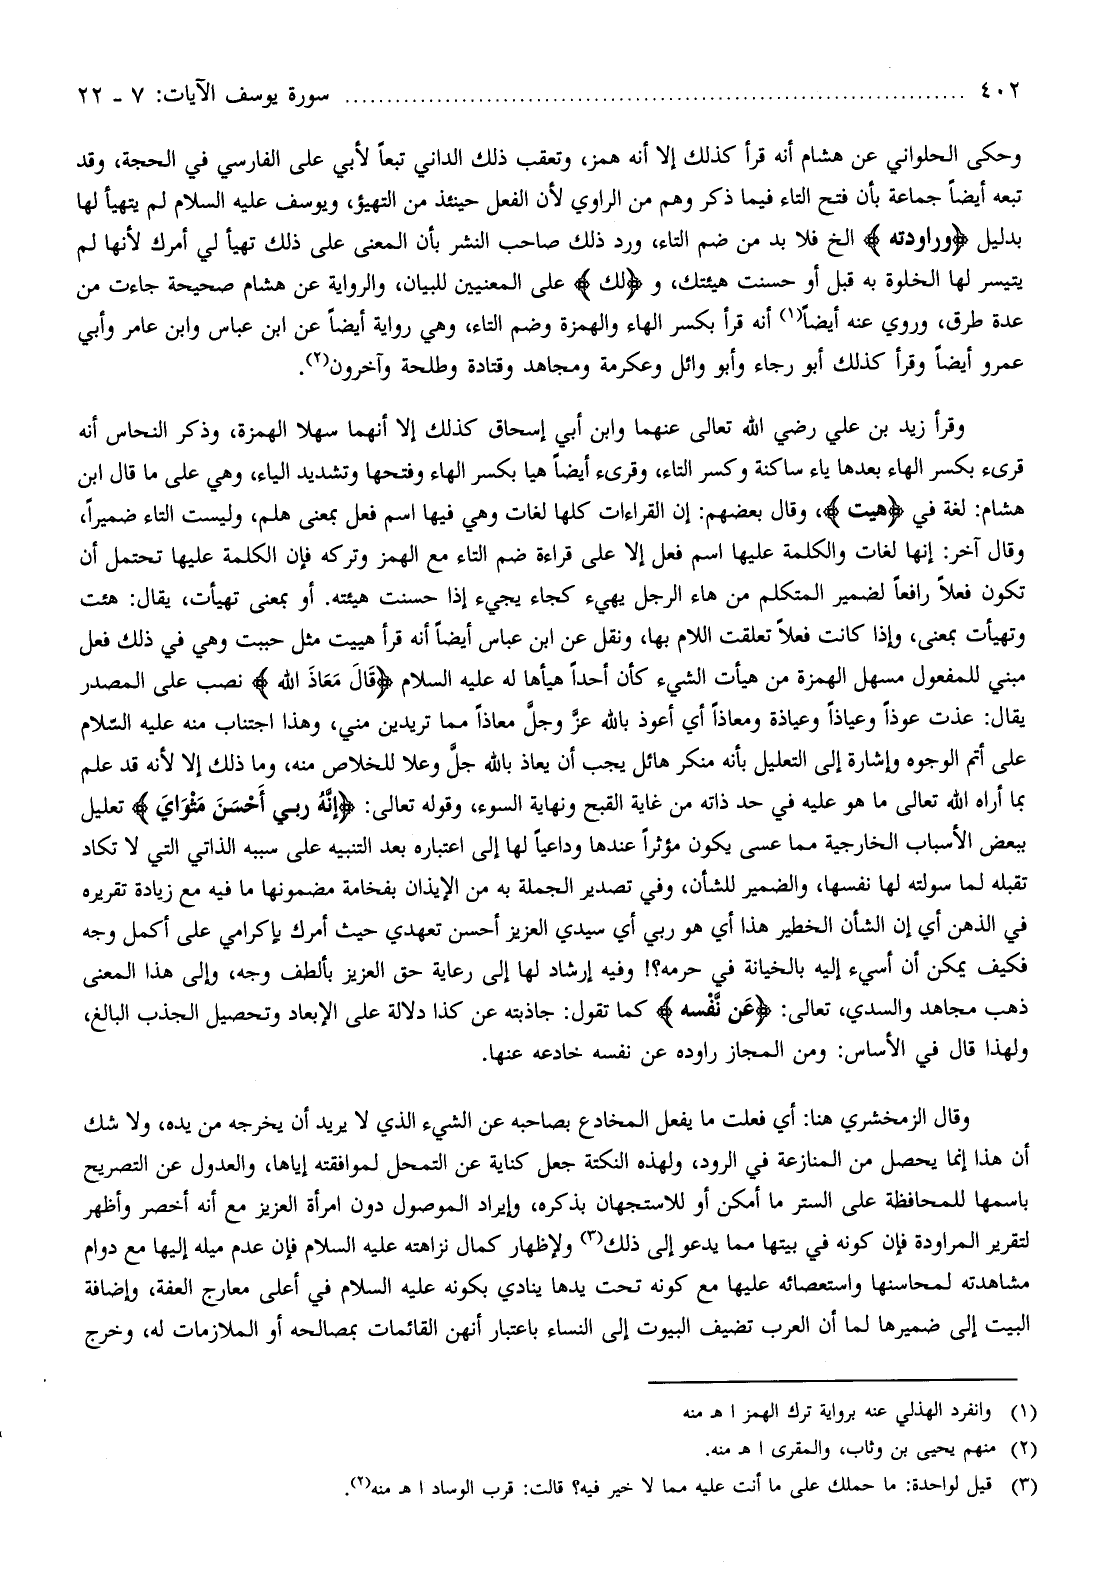 ٤٠٢ ........................................................ سورة يوسف الآيات: ٧ ـ ٢٢
وحكى الحلواني عن هشام أنه قرأ كذلك إلا أنه همز، وتعقب ذلك الداني تبعاً لأبي على الفارسي في الحجة، وقد
تبعه أيضاً جماعة بأن فتح التاء فيما ذكر وهم من الراوي لأن الفعل حينئذ من التهيؤ، ويوسف عليه السلام لم يتهيأ لها
بدليل ﴿وراودته﴾ الخ فلا بد من ضم التاء، ورد ذلك صاحب النشر بأن المعنى على ذلك تهيأ لي أمرك لأنها لم
يتيسر لها الخلوة به قبل أو حسنت هيئتك، و ﴿لك﴾ على المعنيين للبيان، والرواية عن هشام صحيحة جاءت من
عدة طرق، وروي عنه أيضاً(١) أنه قرأ بكسر الهاء والهمزة وضم التاء، وهي رواية أيضاً عن ابن عباس وابن عامر وأبي
عمرو أيضاً وقرأ كذلك أبو رجاء وأبو وائل وعكرمة ومجاهد وقتادة وطلحة وآخرون(٢).
وقرأ زيد بن علي رضي الله تعالى عنهما وابن أبي إسحاق كذلك إلا أنهما سهلا الهمزة، وذكر النحاس أنه
قرىء بكسر الهاء بعدها ياء ساكنة وكسر التاء، وقرىء أيضاً هيا بكسر الهاء وفتحها وتشديد الياء، وهي على ما قال ابن
هشام: لغة في ﴿هيت﴾، وقال بعضهم: إن القراءات كلها لغات وهي فيها اسم فعل بمعنى هلم، وليست التاء ضميراً،
وقال آخر: إنها لغات والكلمة عليها اسم فعل إلا على قراءة ضم التاء مع الهمز وتركه فإن الكلمة عليها تحتمل أن
تكون فعلاً رافعاً لضمير المتكلم من هاء الرجل يهيء كجاء يجيء إذا حسنت هيئته. أو بمعنى تهيأت، يقال: هئت
وتهيأت بمعنى، وإذا كانت فعلاً تعلقت اللام بها، ونقل عن ابن عباس أيضاً أنه قرأ هييت مثل حببت وهي في ذلك فعل
مبني للمفعول مسهل الهمزة من هيأت الشيء كأن أحداً هيأها له عليه السلام ﴿قَالَ مَعَاذَ الله﴾ نصب على المصدر
يقال: عذت عوذاً وعياذاً وعياذة ومعاذاً أي أعوذ بالله عزَّ وجلَّ معاذاً مما تريدين مني، وهذا اجتناب منه عليه السّلام
على أتم الوجوه وإشارة إلى التعليل بأنه منكر هائل يجب أن يعاذ بالله جلَّ وعلا للخلاص منه، وما ذلك إلا لأنه قد علم
بما أراه الله تعالى ما هو عليه في حد ذاته من غاية القبح ونهاية السوء، وقوله تعالى: ﴿إنَّهُ ربـي أَحْسَنَ مَثْوَايَ﴾ تعليل
ببعض الأسباب الخارجية مما عسى يكون مؤثراً عندها وداعياً لها إلى اعتباره بعد التنبيه على سببه الذاتي التي لا تكاد
تقبله لما سولته لها نفسها، والضمير للشأن، وفي تصدير الجملة به من الإيذان بفخامة مضمونها ما فيه مع زيادة تقريره
في الذهن أي إن الشأن الخطير هذا أي هو ربي أي سيدي العزيز أحسن تعهدي حيث أمرك بإكرامي على أكمل وجه
فكيف يمكن أن أسيء إليه بالخيانة في حرمه؟! وفيه إرشاد لها إلى رعاية حق العزيز بألطف وجه، وإلى هذا المعنى
ذهب مجاهد والسدي، تعالى: ﴿عَن نَّفْسه﴾ كما تقول: جاذبته عن كذا دلالة على الإبعاد وتحصيل الجذب البالغ،
ولهذا قال في الأساس: ومن المجاز راوده عن نفسه خادعه عنها.
وقال الزمخشري هنا: أي فعلت ما يفعل المخادع بصاحبه عن الشيء الذي لا يريد أن يخرجه من يده، ولا شك
أن هذا إنما يحصل من المنازعة في الرود، ولهذه النكتة جعل كناية عن التمحل لموافقته إياها، والعدول عن التصريح
باسمها للمحافظة على الستر ما أمكن أو للاستجهان بذكره، وإيراد الموصول دون امرأة العزيز مع أنه أخصر وأظهر
لتقرير المراودة فإن كونه في بيتها مما يدعو إلى ذلك(٣) ولإظهار كمال نزاهته عليه السلام فإن عدم ميله إليها مع دوام
مشاهدته لمحاسنها واستعصائه عليها مع كونه تحت يدها ينادي بكونه عليه السلام في أعلى معارج العفة، وإضافة
البيت إلى ضميرها لما أن العرب تضيف البيوت إلى النساء باعتبار أنهن القائمات بمصالحه أو الملازمات له، وخرج
(١) وانفرد الهذلي عنه برواية ترك الهمز ا هـ منه
(٢) منهم يحيى بن وثاب، والمقرى ا هـ منه.
(٣) قيل لواحدة: ما حملك على ما أنت عليه مما لا خير فيه؟ قالت: قرب الوساد ا هـ منه(٢).